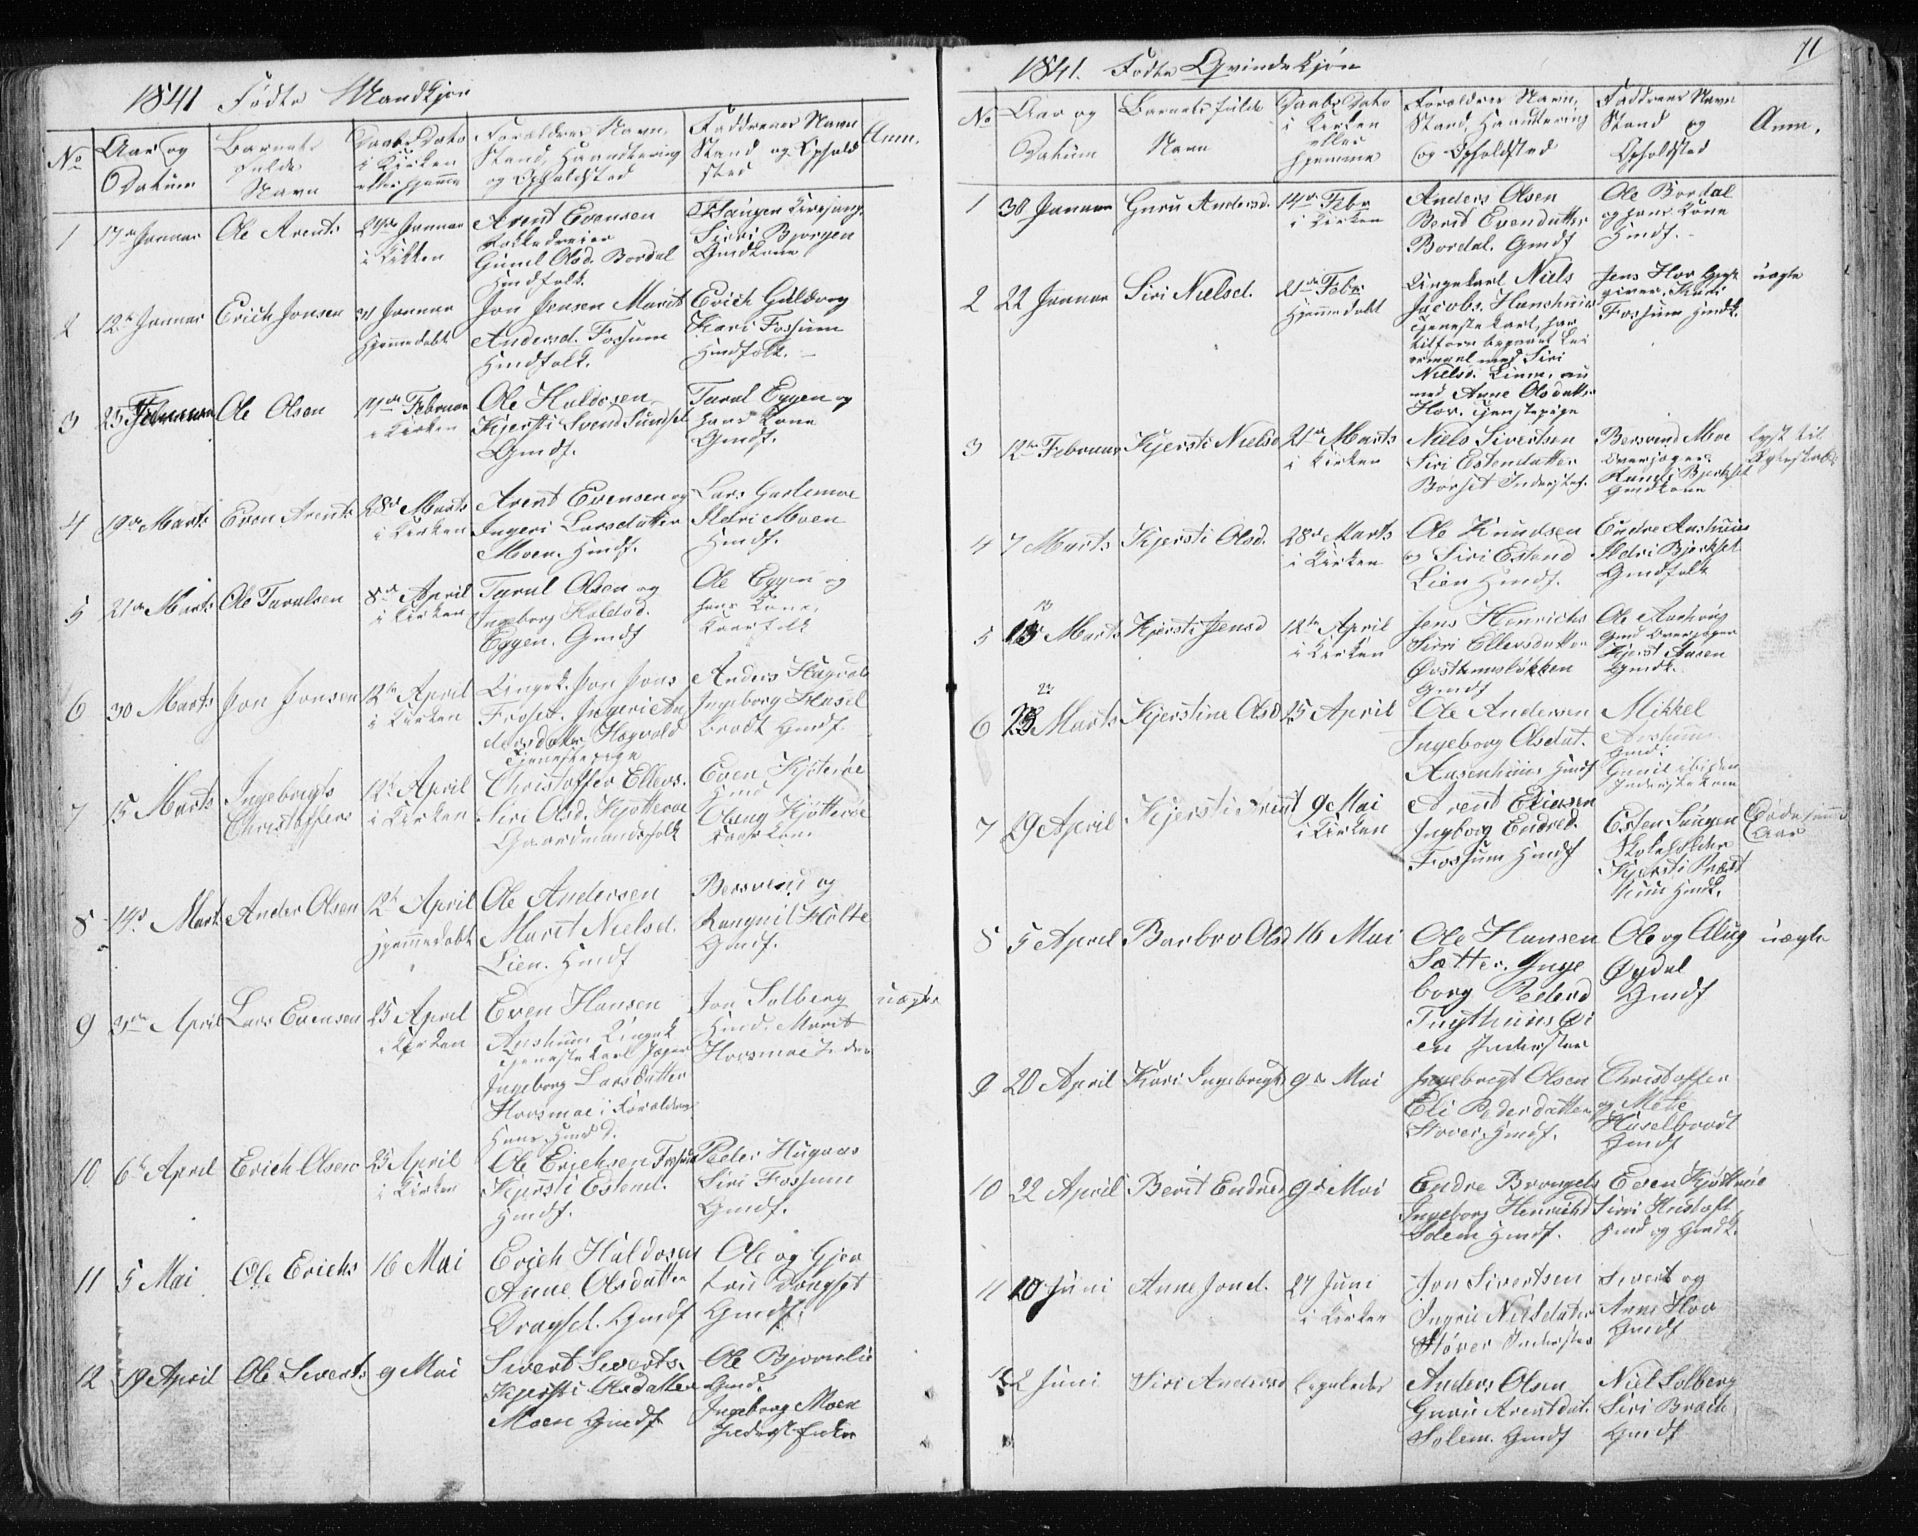 1841 Fødte Mandkjøn
No
Aar og
Datum
Barnets
fulde
Navn
Daabs Dato
i Kirken
eller hjemme
Foraldres Navn,
Stand, Haandtering
og Opholdsted
Faddrenes Navn
Stand og Ophold
sted
Anm.
1
17de Januar
Ole Arents
24de Januar
i Kirken
Arent Evensen
Gunil Olsd. Bordal
Huusfolk.
Siri Bjørgen
Gmdkone
2
12te Januar
Erich Jonsen
31 Januar
hjemmedøbt
Jon Jensen Marit
Andersd. Fossum
Hmdfolk.
Erich Guldvog
Kari Fossum
Hmdfolk.
3
23 Februar
Ole Olsen
14de Februar
i Kirken
Ole Haldosen
Kjersti Svend Sundset
Gmdf.
Tarul Eggen og
hans Kone
Gmdf.
4
19de Marts
Even Arents
28de Marts
i Kirken
Arent Evensen og
Ingeri Larsdatter
Moen. Hmdf.
Lars Garlimoe
Ildri Moen
Hmdf.
5
21de Marts
Ole Tarulsen
8de April
i Kirken
Tarul Olsen og
Ingeborg Haldosd.
Eggen. Gmdf
Ole Eggen og
hans Kone,
Kaarfolk
6
30 Marts
Jon Jonsen
12te April
i Kirken
Ungek. Jon Jons
Froset. Ingeri An
dersdatter Hagvold
Tjenestepige
Anders Hagvold
Ingeborg Hasel
brodt Gmdf.
7
15 Marts
Ingebrigts
Christoffers
12te April
i Kirken
Christoffer Ellevs.
Siri Olsd. Kjøtterøe
Gaardmandsfolk
Even Kjøterøe
Gmd
Olaug Kjøtterøe
Kaarkone
8
14de Mart
Ander Olsen
12te April
hjemmedøbt
Ole Andersen
Marit Nielsd.
Lien. Hmdf
Bersvend og
Rangnil Holte
Gmdf.
9
3de April
Lars Evensen
25 April
i Kirken
Even Hansen
Aushuus Ungek
Tjenestekarl
Ingeborg Larsdatter
Hovsmoe i Foraldrenes
Huus Hmd.
Jon Solberg
Hmd. Marit
Hovsmoe
uægte
10
6te April
Erich Olsen
25 April
i Kirken
Ole Erichsen Fossum
Kjersti Estend.
Hmdf.
Peder Hugaas
Siri Fossum
Gmdf.
11
5 Mai
Ole Erichs
16 Mai
Erich Haldosen
Anne Olsdatter
Dragset. Gmdf
Ole og Gjer
trud Dragset
Gmdf.
12
19 April
Ole Siverts
9 Mai
Sivert Siverts.
Kjersti Olsdatter
Moen Gmdf
Ole Bjørnlie
Gmd.
Ingeborg Moen
Inderstinke
11
1841. Fødte Qvindekjøn
No
Aar og
Datum
Barnets fulde
Navn
Daabs Dato
i Kirken
eller
hjemme
Foraldres Navn,
Stand, Haandtering
og Opholdsted
Faddrenes Navn
Stand og
Opholdsted
Anm.
1
30 Januar
Guru Andersd.
14de Febr
i Kirken
Anders Olsen
Berit Evendatter
Bordal. Gmdf
Ole Bordal
og hans Kone
Hmdf.
2
22 Januar
Siri Nielsd.
21de Febr
hjemmedøbt
Ungekarl Niels
Jacobs. Hanshuus
Tjenestekarl, har
tilforn begaaet Lei
ermaal med Siri
Nielsd. Lium, nu
med Anne Olsdatter
Hov. Tjenstepige
Jens Hov
giver. Kari
Fossum Hmdk.
uægte
3
12te Februar
Kjersti Nielsd
21de Marts
i Kirken
Niels Sivertsen
Siri Estendatter
Borset Inderstef.
Bersvend Moe
Overjæger.
Randi Bjerkset
Gmdkone
Lyst til
Ægteskab
4
7 Marts
Kjersti Olsd.
28de Marts
i Kirken
Ole Knudsen
og Siri Estend
Lien Hmdf.
Endre Aushuus
Ildri Bjerkset
Gmdfolk
5
13
13 Marts
Kjersti Jensd
12te April
i Kirken
Jens Henrichs
Siri Ellevsdatter
Østhuusløkken
Gmdf
Ole Aushoug
Gmd Overjæger
Kjerst Aasen
Gmdk.
6
23
23 Marts
Kjerstine Olsd
25 April
Ole Andersen
Ingeborg Olsdat.
Aasenhuus Hmdf
Mikkel
Aushuus
Gmd.
Gunil ibiden
Inderstekone
7
29 April
Kjersti Arent
9de Mai
i Kirken
Arent Ellevsen
Ingborg Endred.
Fossum Hmdf
Esten Langen
Skoleholder
Kjersti Præst
huus Hmdk.
Døde samme
Aar
8
5 April
Barbro Olsd
16 Mai
Ole Hansen
Sætter. Inge
borg Pederd
Tuythuus Øi
en Inderster
Ole og Olug
Øydal
Gmdf
uægte
9
20 April
Kari Ingebrigts
9de Mai
Ingebregt Olsen
Eli Pederdatter
Støver. Hmdf.
Christoffer
og Mette
Haselbrodt
Gmdf
10
22 April
Berit Endred
9de Mai
Endre Brongels
Ingeborg Henrichsd
Solem Hmdf.
Even Kjøtterøe
Siri Hestoft
Hmd og Gmdk.
11
10 Juni
Anne Jonsd.
27 Juni
i Kirken
Jon Sivertsen
Ingrie Nielsdater
Støver Inderster
Sivert og
Anne Hov
Gmdf
12
2 Juni
Siri Andersd
Ligeledes
Anders Olsen
Guru Arentdat.
Solem. Gmdf
Niel Solberg
Siri Bræk
Gmdf